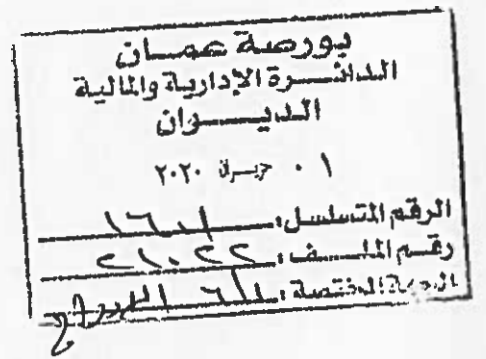 بورصة عمان
الدائرة الإدارية والمالية
الديوان
٠١ حزيران ٢٠٢٠
الرقم المتسلسل: ١٦٠١
رقم الملف: ٢١٠٢٢
الجهة المختصة: